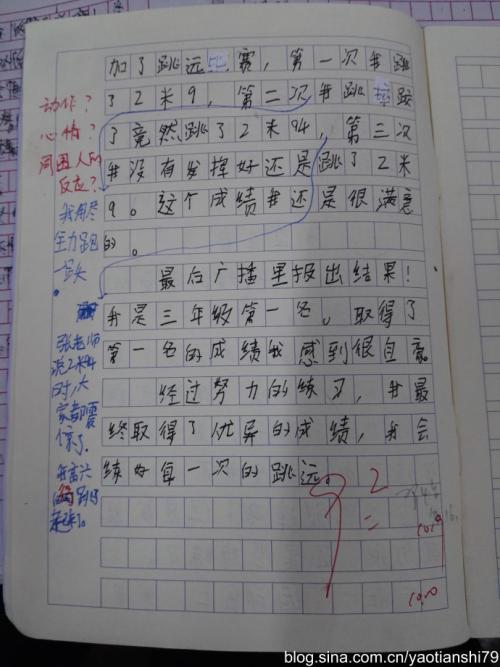 加了跳远比赛，第一次我跳
了2米9，第二次我跳
了竟然跳了2米94，第三次
我没有发挥好还是跳了2米
9。这个成绩我还是很满意
的。
最后广播里报出结果！
我是三年级第一名。取得了
第一名的成绩我感到很自豪
经过努力的练习，我最
终取得了优异的成绩，我会
练好每一次的跳远。
动作？
心情？
周围人的
反应？
我用尽
全力跑
张老师
说2米94
时，大
家都震
惊了。
我高兴
的跳
起来了。
优
2
10.9
10.10
blog.sina.com.cn/yaotianshi79